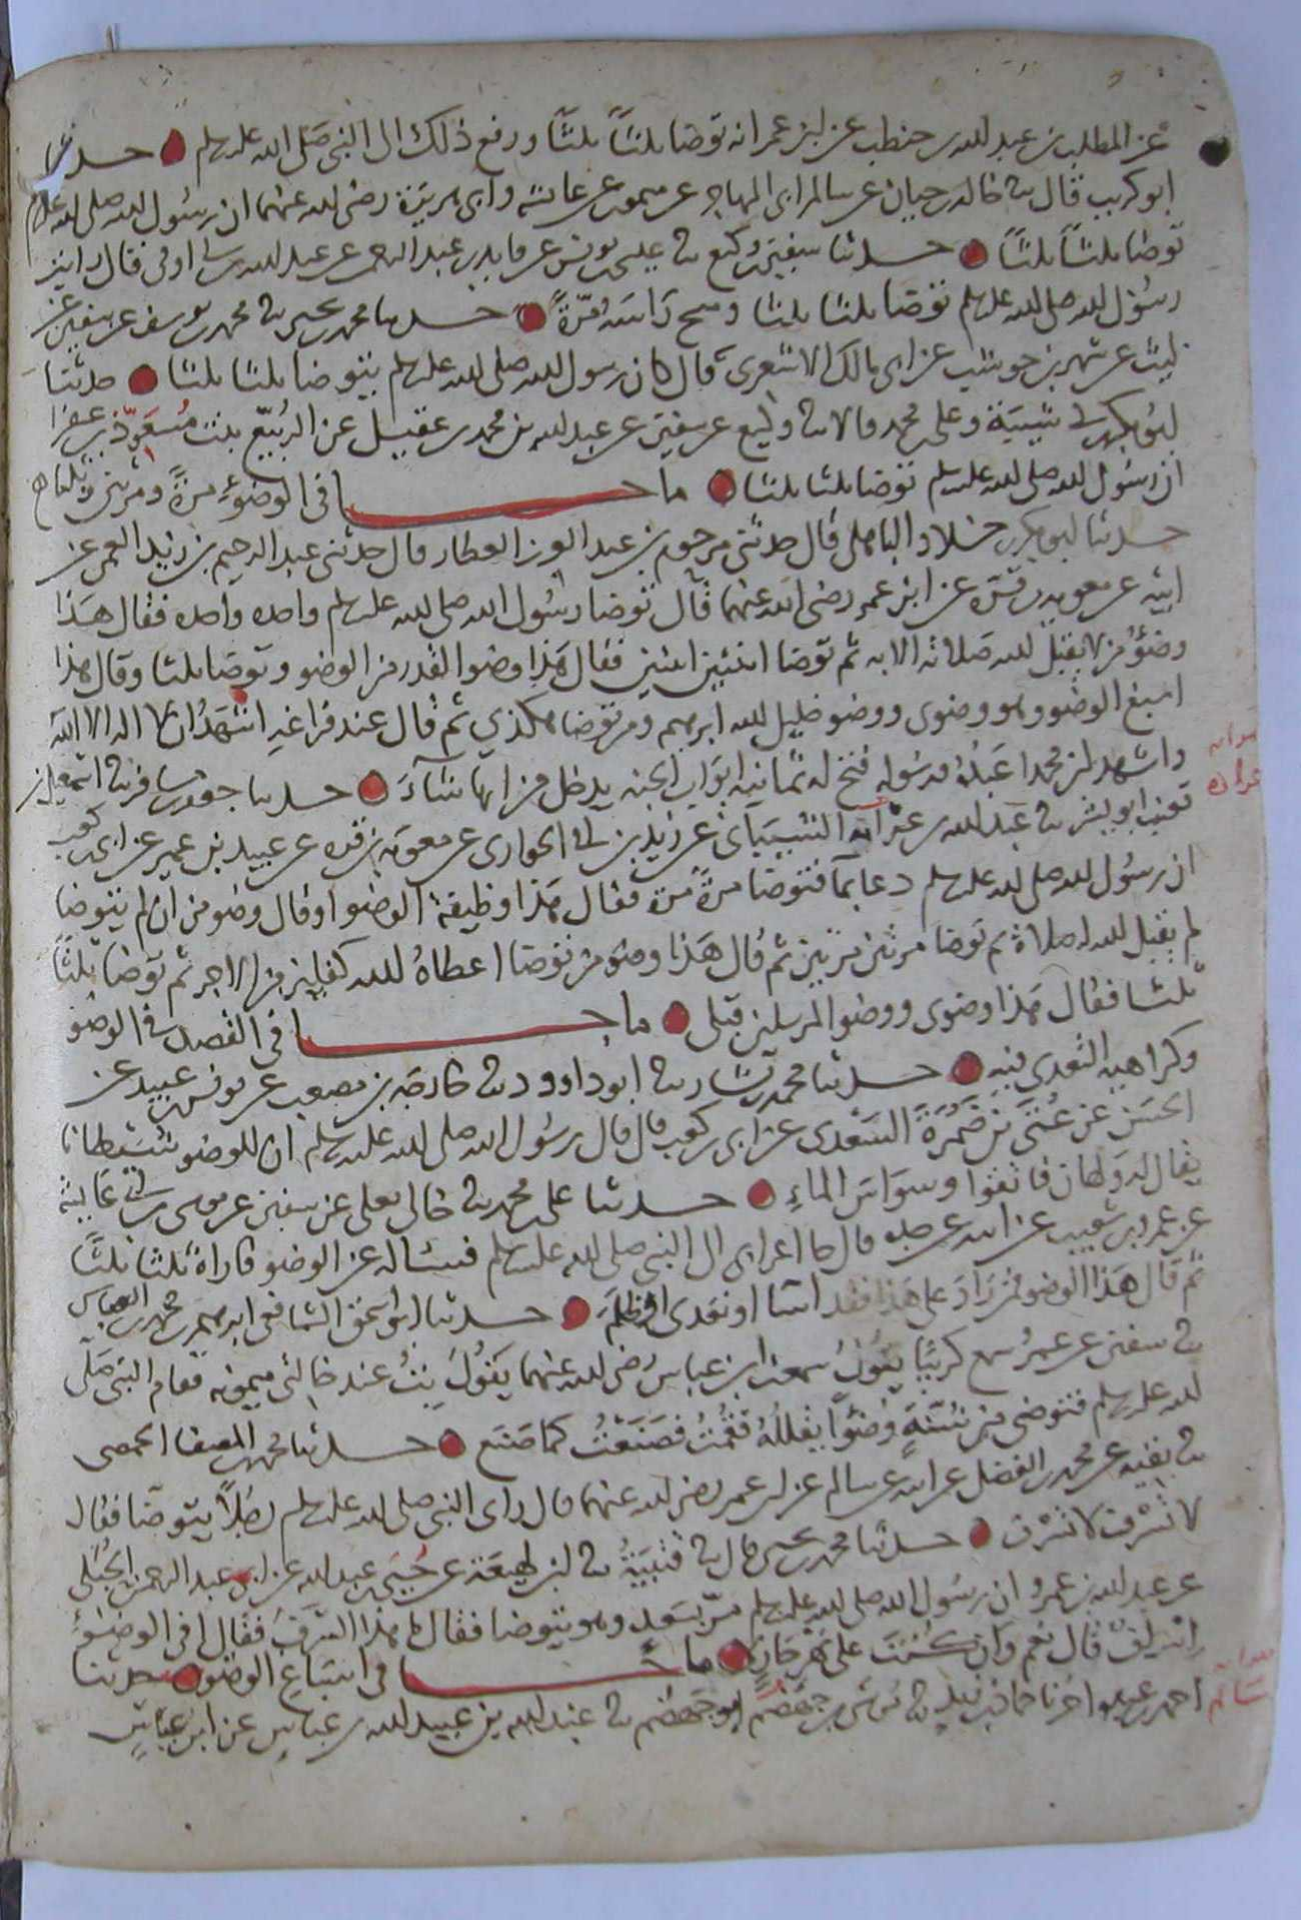 عن المطلب بن عبد الله بن حنطب عن ابن عمر انه توضا ثلثاً ثلثاً ورفع ذلك الى النبي صلى الله عليه وسلم ● حدثنا
ابو كريب قال ثنا خالد بن حيان عن سالم ابى المهاجر عن ميمون عن عائشه وابى هريرة رضى الله عنهما ان رسول الله صلى الله عليه وسلم
توضا ثلثاً ثلثاً ● حدثنا سفين بن وكيع ثنا عيسى بن يونس عن فايد بن عبد الرحمن عن عبد الله بن ابى اوفى قال رايت
رسول الله صلى الله عليه وسلم توضا ثلثا ثلثا ومسح راسه مرةً ● حدثنا محمد بن يحيى ثنا محمد بن يوسف عن سفين عن
ليث عن شهر بن حوشب عن ابى مالك الاشعرى قال كان رسول الله صلى الله عليه وسلم يتوضا ثلثا ثلثا ● حدثنا
ابو بكر بن ابى شيبة وعلى بن محمد قالا ثنا وكيع عن سفين عن عبد الله بن محمد بن عقيل عن الربيع بنت معوذ بن عفرا
ان رسول الله صلى الله عليه وسلم توضا ثلثا ثلثا ● ما جا فى الوضوء مرةً ومرتين وثلثا
حدثنا ابو بكر بن خلاد الباهلى قال حدثنى مرحوم بن عبد العزيز العطار قال حدثنى عبد الرحيم بن زيد العمى عن
ابيه عن معوية بن قرة عن ابن عمر رضى الله عنهما قال توضا رسول الله صلى الله عليه وسلم واحده واحده فقال هذا
وضوُ من لا يقبل الله صلاته الا به ثم توضا اثنتين اثنتين فقال هذا وضو القدر من الوضو وتوضا ثلثا وقال هذا
اسبغ الوضو وهو وضوى ووضو خليل الله ابرهيم ومن توضا هكذى ثم قال عند فراغه اشهد ان لا اله الا الله
واشهد ان محمدا عبده ورسوله فتح له ثمانيه ابواب الجنه يدخل من ايها شآء ● حدثنا جعفر بن مسافر ثنا اسمعيل بن
قعنب ابو بشر ثنا عبد الله بن عرادة الشيبانى عن زيد بن ابى الحوارى عن معوية بن قره عن عبيد بن عمير عن ابى بن كعب
ان رسول الله صلى الله عليه وسلم دعا بما فتوضا مرةً مرة فقال هذا وظيفه الوضو او قال وضو من ان لم يتوضا
لم يقبل الله له صلاة ثم توضا مرتين مرتين ثم قال هذا وضو من توضا اعطاهُ الله كفلين من الاجر ثم توضا ثلثا
ثلثا فقال هذا وضوى ووضو المرسلين قبلى ● ما جا فى القصد فى الوضو
وكراهيه التعدى فيه ● حدثنا محمد بن بشار ثنا ابو داوود ثنا خارجه بن مصعب عن يونس بن عبيد عن
الحسن عن عُتَى بن ضمرة السعدى عن ابى بن كعب قال قال رسول الله صلى الله عليه وسلم ان للوضو شيطانا
يقال له ولهان فاتقوا وسواس الماءِ ● حدثنا على بن محمد ثنا خالى يعلى عن سفين عن موسى بن ابى عايشه
عن عمرو بن شعيب عن ابيه عن جده قال جا اعرابى الى النبى صلى الله عليه وسلم فسئاله عن الوضو فاراه ثلثا ثلثا
ثم قال هذا الوضو فمن زاد على هذا فقد اسا او تعدى او ظلم ● حدثنا ابو اسحق الشافعى ابرهيم بن محمد بن العباس
ثنا سفين عن عمرو سمع كريبا يقول سمعت ابن عباس رضى الله عنهما يقول بت عند خالتى ميمونه فقام النبى صلى
الله عليه وسلم فتوضى من شنة وضوًا يقلله فقمت فصنعت كما صنع ● حدثنا محمد بن المصفا الحمصى
ثنا بقيه عن محمد بن الفضل عن ابيه عن سالم عن ابن عمر رضى الله عنهما قال راى النبى صلى الله عليه وسلم رجلاً يتوضا فقال
لا تسرف لا تسرف ● حدثنا محمد بن يحيى قال ثنا قتيبة ثنا ابن لهيعة عن حُيَى بن عبد الله عن ابى عبد الرحمن الحبلى
عن عبد الله بن عمرو ان رسول الله صلى الله عليه وسلم مر بسعد وهو يتوضا فقال ما هذا السرف فقال افى الوضوءِ
اسراف قال نعم وان كنت على نهر جار ● ما جا فى اسباغ الوضو ● حدثنا
احمد بن عبده اخرنا حماد بن زيد ثنا موسى بن جهضم ابو جهضم ثنا عبد الله بن عبيد الله بن عباس عن ابن عباس
صوابه
عراده
صوابه
سالم